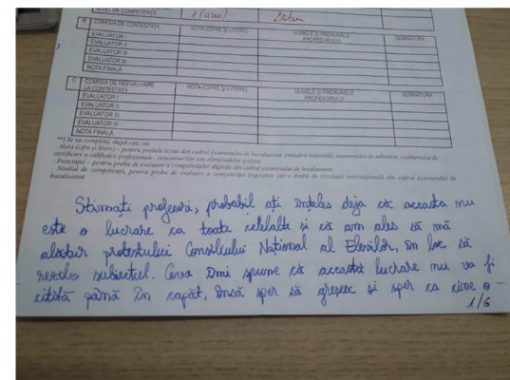 NIVEL DE COMPETENȚĂ
1 (unu)
B COMISIA DE CONTESTAȚII NOTA (CIFRE ȘI LITERE) NUMELE ȘI PRENUMELE PROFESORULUI SEMNĂTURA
EVALUATOR I
EVALUATOR II
EVALUATOR III
EVALUATOR IV
NOTA FINALĂ
C COMISIA DE REEVALUARE LA CONTESTAȚII NOTA (CIFRE ȘI LITERE) NUMELE ȘI PRENUMELE PROFESORULUI SEMNĂTURA
EVALUATOR I
EVALUATOR II
EVALUATOR III
EVALUATOR IV
NOTA FINALĂ
**) Se va completa, după caz, cu:
- Nota (cifre și litere) - pentru probele scrise din cadrul examenului de bacalaureat, evaluării naționale, examenului de admitere, examenului de
certificare a calificării profesionale, concursurilor sau olimpiadelor școlare;
- Punctajul - pentru proba de evaluare a competențelor digitale din cadrul examenului de bacalaureat;
- Nivelul de competență, pentru proba de evaluare a competenței lingvistice într-o limbă de circulație internațională din cadrul examenului de
bacalaureat
Stimați profesori, probabil ați înțeles deja că aceasta nu
este o lucrare ca toate celelalte și că am ales să mă
alătur protestului Consiliului Național al Elevilor, în loc să
rezolv subiectul. Ceva îmi spune că această lucrare nu va fi
citită până în capăt, însă sper să greșesc și sper ca cine o
1/6